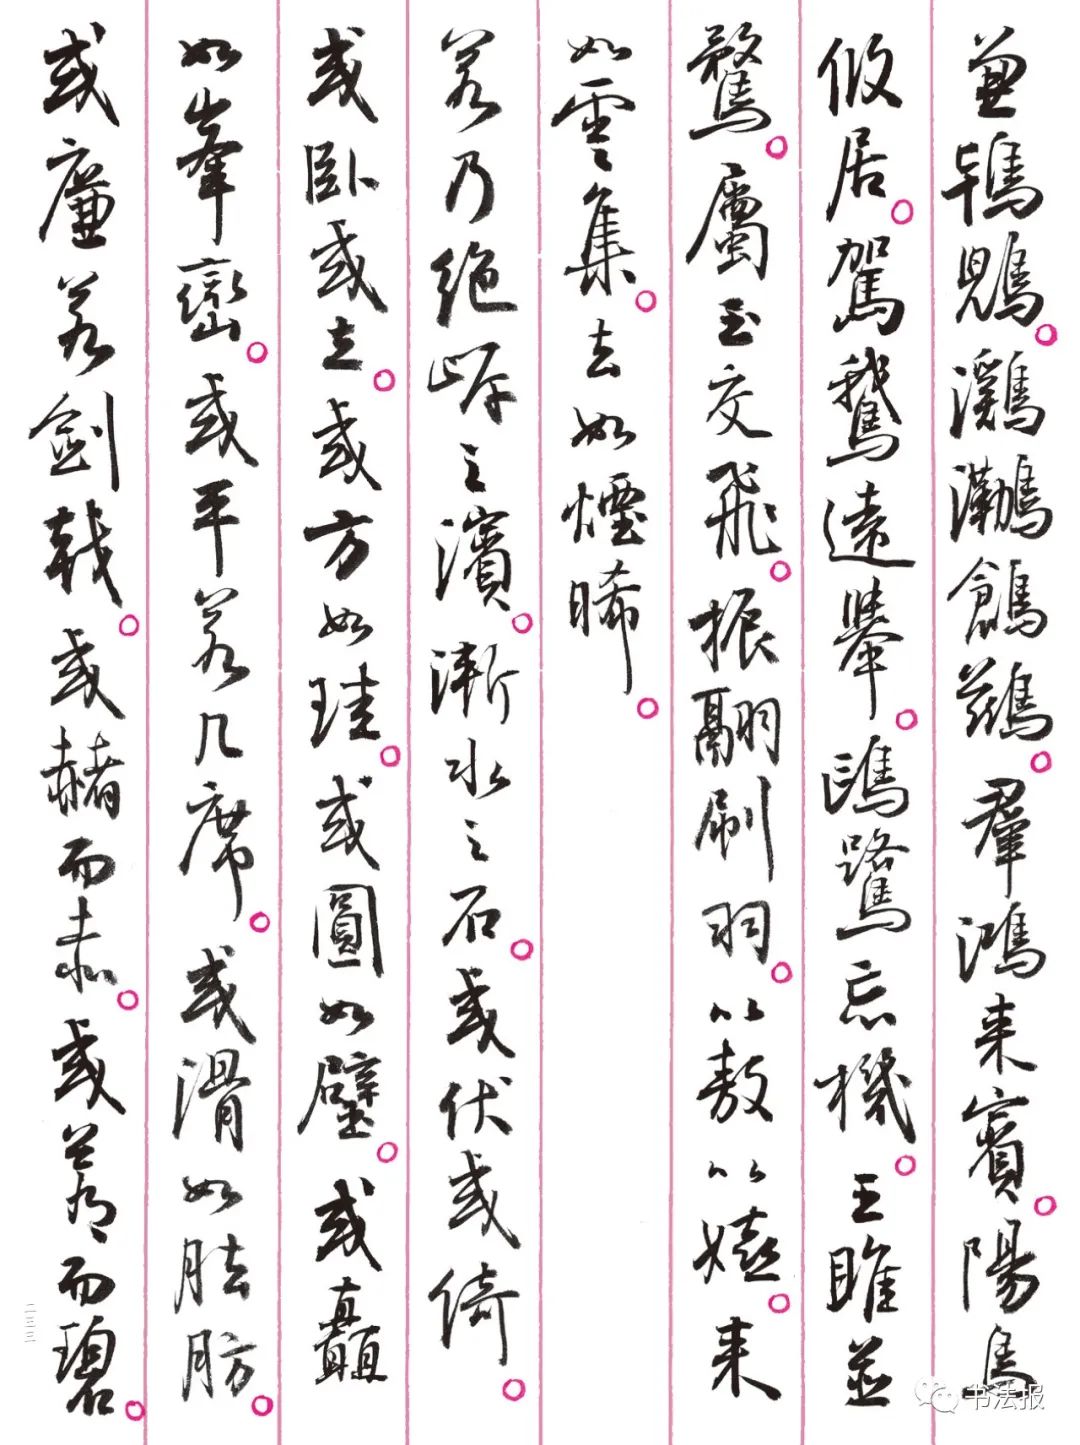 兼鴇鶂。鸂鷘鶬鶿。羣鴻來賓。陽鳥
攸居。駕鵝遠舉。鷗鷺忘機。王雎並
鶩。屬玉交飛。振翮刷羽。以敖以嬉。來
如雲集。去如煙晞。
若乃絕岸之濱。漸水之石。或伏或倚。
或臥或立。或方如珪。或圓如璧。或巔
如峯巒。或平若几席。或滑如肪。
或廉若劍戟。或赭而赤。或而碧。
二三三
书法报